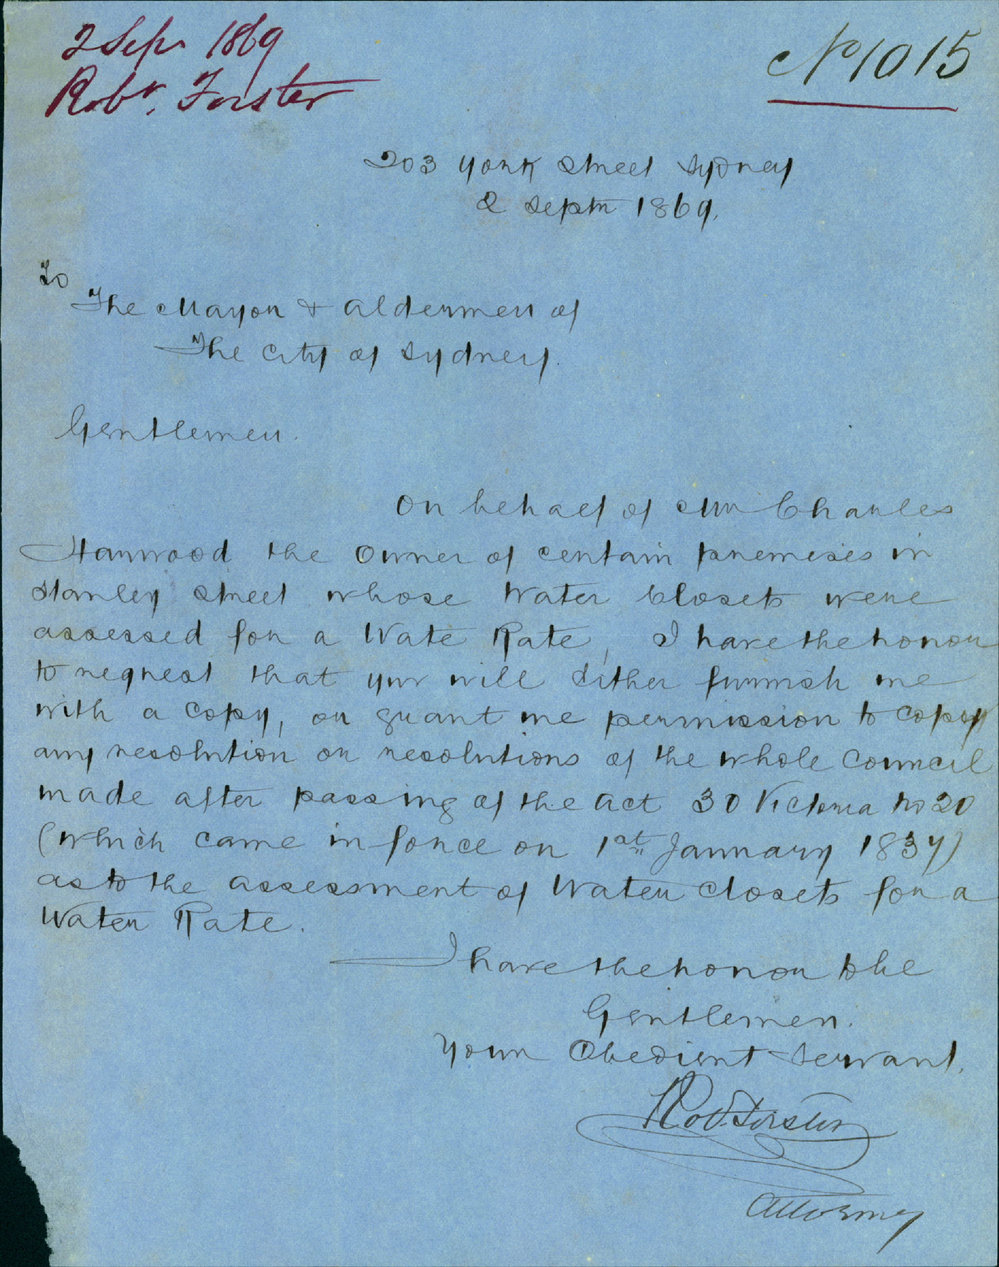 2 Sepr 1869
Robt. Forster
No 1015
203 York Street Sydney
2 Septr 1869.
To
The Mayor & Aldermen of
The City of Sydney.
Gentlemen.
On behalf of Mr Charles
Harwood the Owner of certain premises in
Stanley Street whose Water Closets were
assessed for a Wate Rate, I have the honor
to request that you will either furnish me
with a copy, or grant me permission to copy
any resolution or resolutions of the whole Council
made after passing of the Act 30 Victoria No 20
(which came in force on 1st January 1837)
as to the assessment of Water Closets for a
Water Rate.
I have the honor to be
Gentlemen.
Your Obedient Servant.
Rob. Forster
Attorney